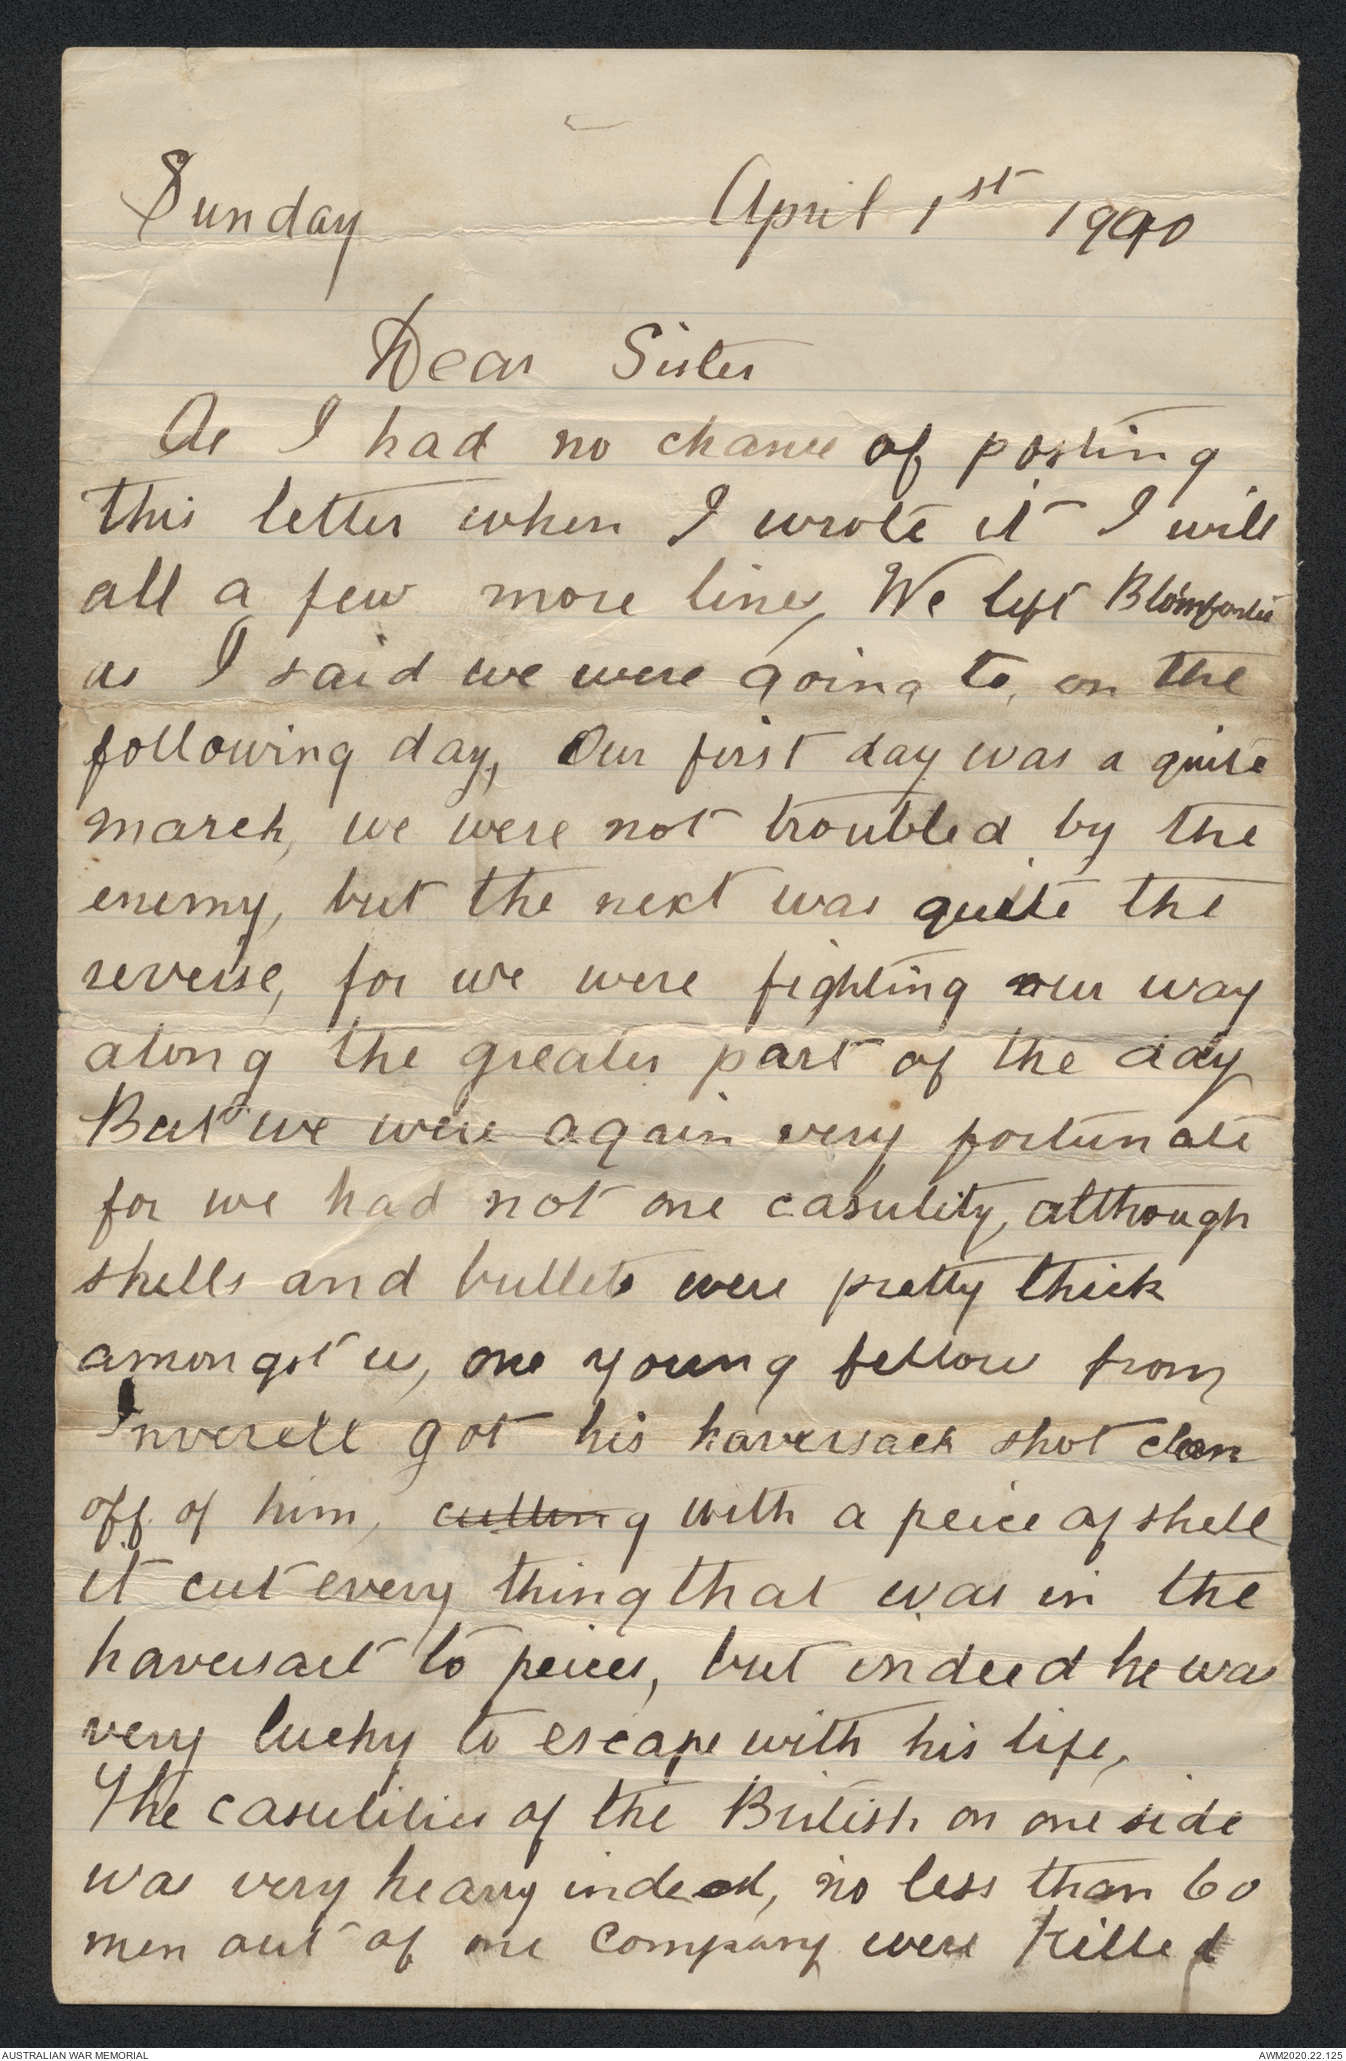 Sunday April 1st 1900
Dear Sister
As I had no chance of posting
this letter when I wrote it I will
all a few more lines, We left Blomfontei
as I said we were going to, on the
following day, Our first day was a quite
march, we were not troubled by the
enemy, but the next was quite the
reverse, for we were fighting our way
along the greater part of the day
But we were again very fortunate
for we had not one casulity, although
shells and bullets were pretty thick
amongst us, one young fellow from
Inverell got his haversack shot clean
off of him, cutting with a peice of shell
it cut every thing that was in the
haversact to peices, but indeed he was
very lucky to escape with his life,
The casulities of the British on one side
was very heavy indeed, no less than 60
men out of one Company were killed
AUSTRALIAN WAR MEMORIAL AWM2020.22.125